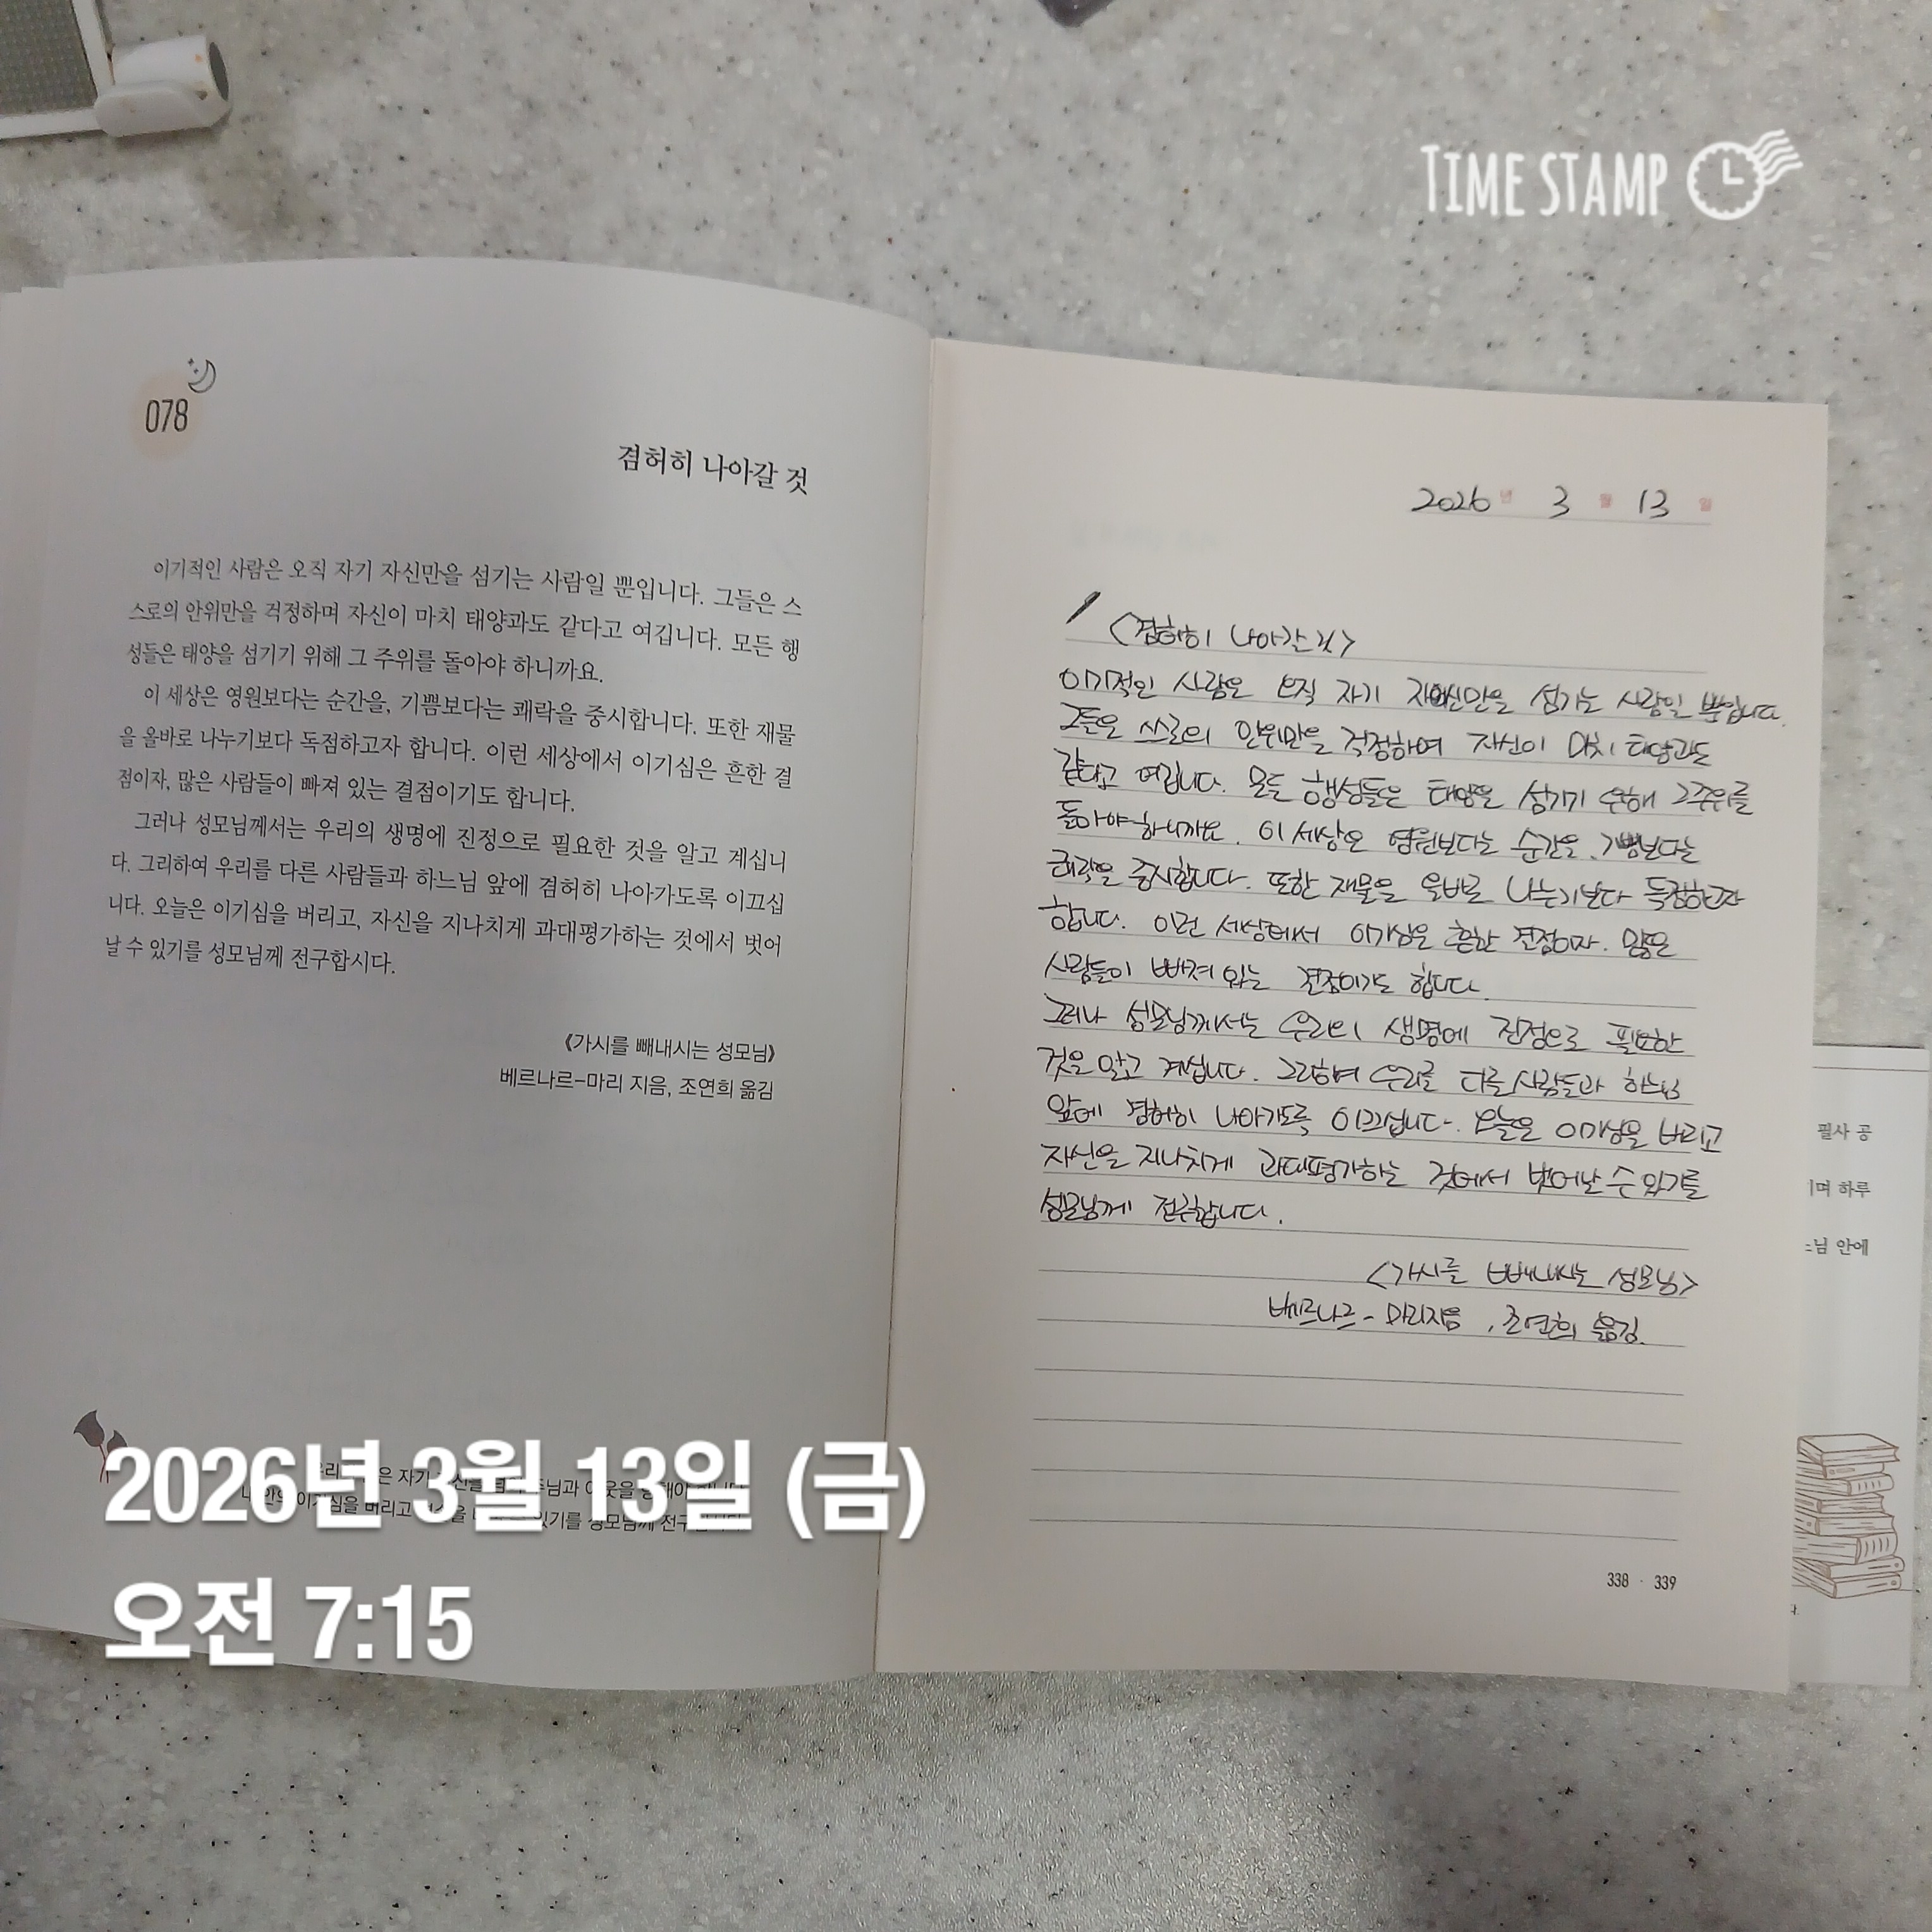 TIME STAMP
078
겸허히 나아갈 것
이기적인 사람은 오직 자기 자신만을 섬기는 사람일 뿐입니다. 그들은 스
스로의 안위만을 걱정하며 자신이 마치 태양과도 같다고 여깁니다. 모든 행
성들은 태양을 섬기기 위해 그 주위를 돌아야 하니까요.
이 세상은 영원보다는 순간을, 기쁨보다는 쾌락을 중시합니다. 또한 재물
을 올바로 나누기보다 독점하고자 합니다. 이런 세상에서 이기심은 흔한 결
점이자, 많은 사람들이 빠져 있는 결점이기도 합니다.
그러나 성모님께서는 우리의 생명에 진정으로 필요한 것을 알고 계십니
다. 그리하여 우리를 다른 사람들과 하느님 앞에 겸허히 나아가도록 이끄십
니다. 오늘은 이기심을 버리고, 자신을 지나치게 과대평가하는 것에서 벗어
날 수 있기를 성모님께 전구합시다.
《가시를 빼내시는 성모님》
베르나르-마리 지음, 조연희 옮김
2026년 3월 13일
<겸허히 나아갈 것>
이기적인 사람은 오직 자기 자신만을 섬기는 사람일 뿐입니다.
그들은 스스로의 안위만을 걱정하며 자신이 마치 태양과도
같다고 여깁니다. 모든 행성들은 태양을 섬기기 위해 그 주위를
돌아야 하니까요. 이 세상은 영원보다는 순간을, 기쁨보다는
쾌락을 중시합니다. 또한 재물을 올바로 나누기보다 독점하고자
합니다. 이런 세상에서 이기심은 흔한 결점이자. 많은
사람들이 빠져 있는 결점이기도 합니다.
그러나 성모님께서는 우리의 생명에 진정으로 필요한
것을 알고 계십니다. 그리하여 우리를 다른 사람들과 하느님
앞에 겸허히 나아가도록 이끄십니다. 오늘은 이기심을 버리고
자신을 지나치게 과대평가하는 것에서 벗어날 수 있기를
성모님께 전구합니다.
<가시를 빼내시는 성모님>
베르나르-마리 지음, 조연희 옮김.
338 · 339
필사 공
며 하루
님 안에
2026년 3월 13일 (금)
오전 7:15